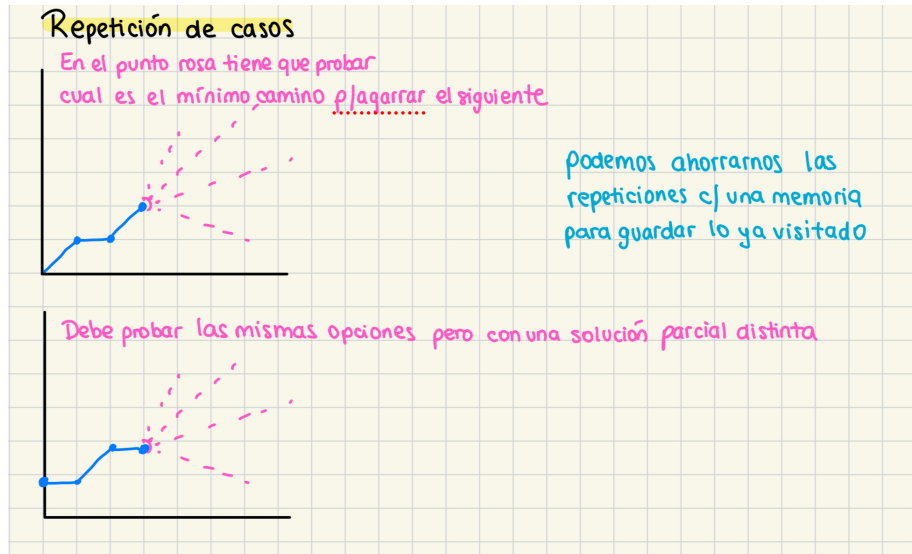 Repetición de casos
En el punto rosa tiene que probar
cual es el mínimo camino p/agarrar el siguiente
podemos ahorrarnos las
repeticiones c/ una memoria
para guardar lo ya visitado
Debe probar las mismas opciones pero con una solución parcial distinta